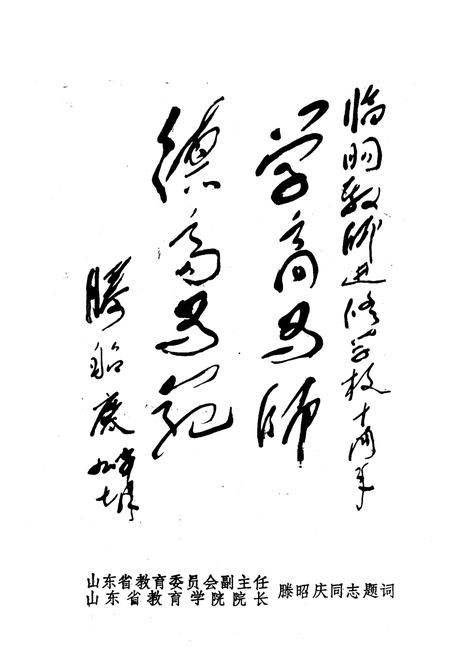 临朐教师进修学校十周年
学高为师
德高为范
滕昭庆
山东省教育委员会副主任
山东省教育学院院长
滕昭庆同志题词